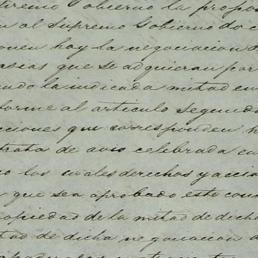 Supremo Gobierno la propo
n al Supremo Gobierno de c
ponen hoy la negociacion
acias que se adquieran por
ando la indicada mitad en
forme al articulo segundo
cciones que corresponden h
trata de avio celebrada en
o los cuales derechos y accio
que sea aprobado este con
opiedad de la mitad de dicha
tad de dicha negociacion d